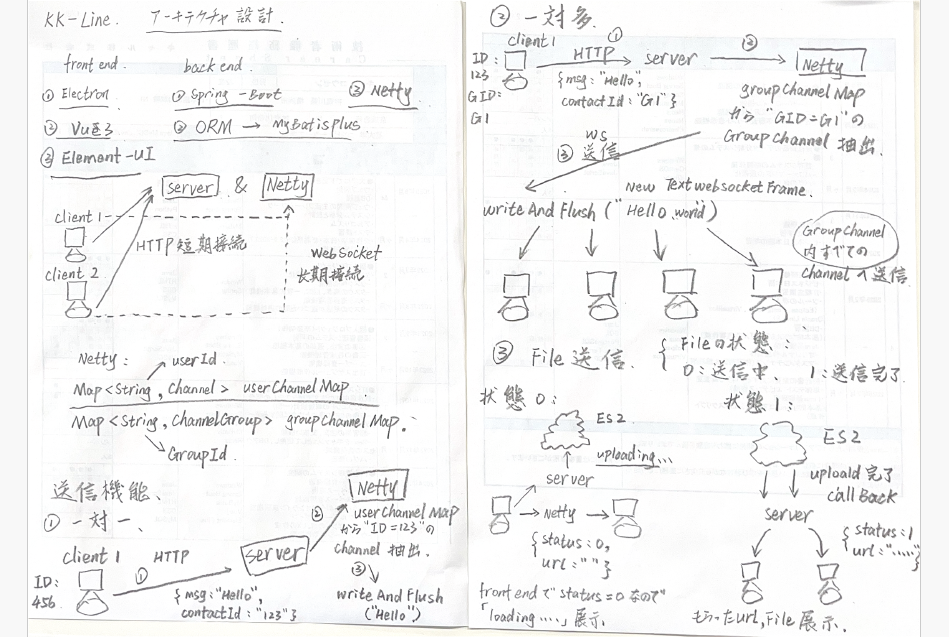 KK-Line. アーキテクチャ設計.
front end.
back end.
① Electron
① Spring-Boot
③ Netty
② Vue3
② ORM → MyBatisplus
③ Element-UI
server & Netty
client 1
HTTP短期接続
client 2
WebSocket
长期接続
Netty:
userId.
Map<String, Channel> userChannelMap.
Map<String, ChannelGroup> groupChannelMap.
GroupId.
送信機能、
① 一対一、
Client 1
HTTP
①
ID:
456
{msg:"Hello",
contactId:"123"}
server
②
Netty
userChannelMap
から"ID=123"の
Channel 抽出.
③
write And Flush
("Hello")
② 一対多.
client 1
ID:
123
GID:
G1
HTTP
①
server
②
Netty
{msg:"Hello",
contactId:"G1"}
groupChannelMap
から"GID=G1"の
GroupChannel 抽出.
ws
③ 送信
new TextwebsocketFrame.
write And Flush ("Hello world")
GroupChannel
内すべての
channelへ送信
③ File 送信.
{ Fileの状態:
0:送信中、 1:送信完了.
状態0:
ES2
uploading...
server
Netty
{status:0,
url:""}
front endで status=0 なので
「loading....」展示.
状態1:
ES2
uploald 完了
callBack
server
{status:1
url:"....."}
もらったurl,File 展示.